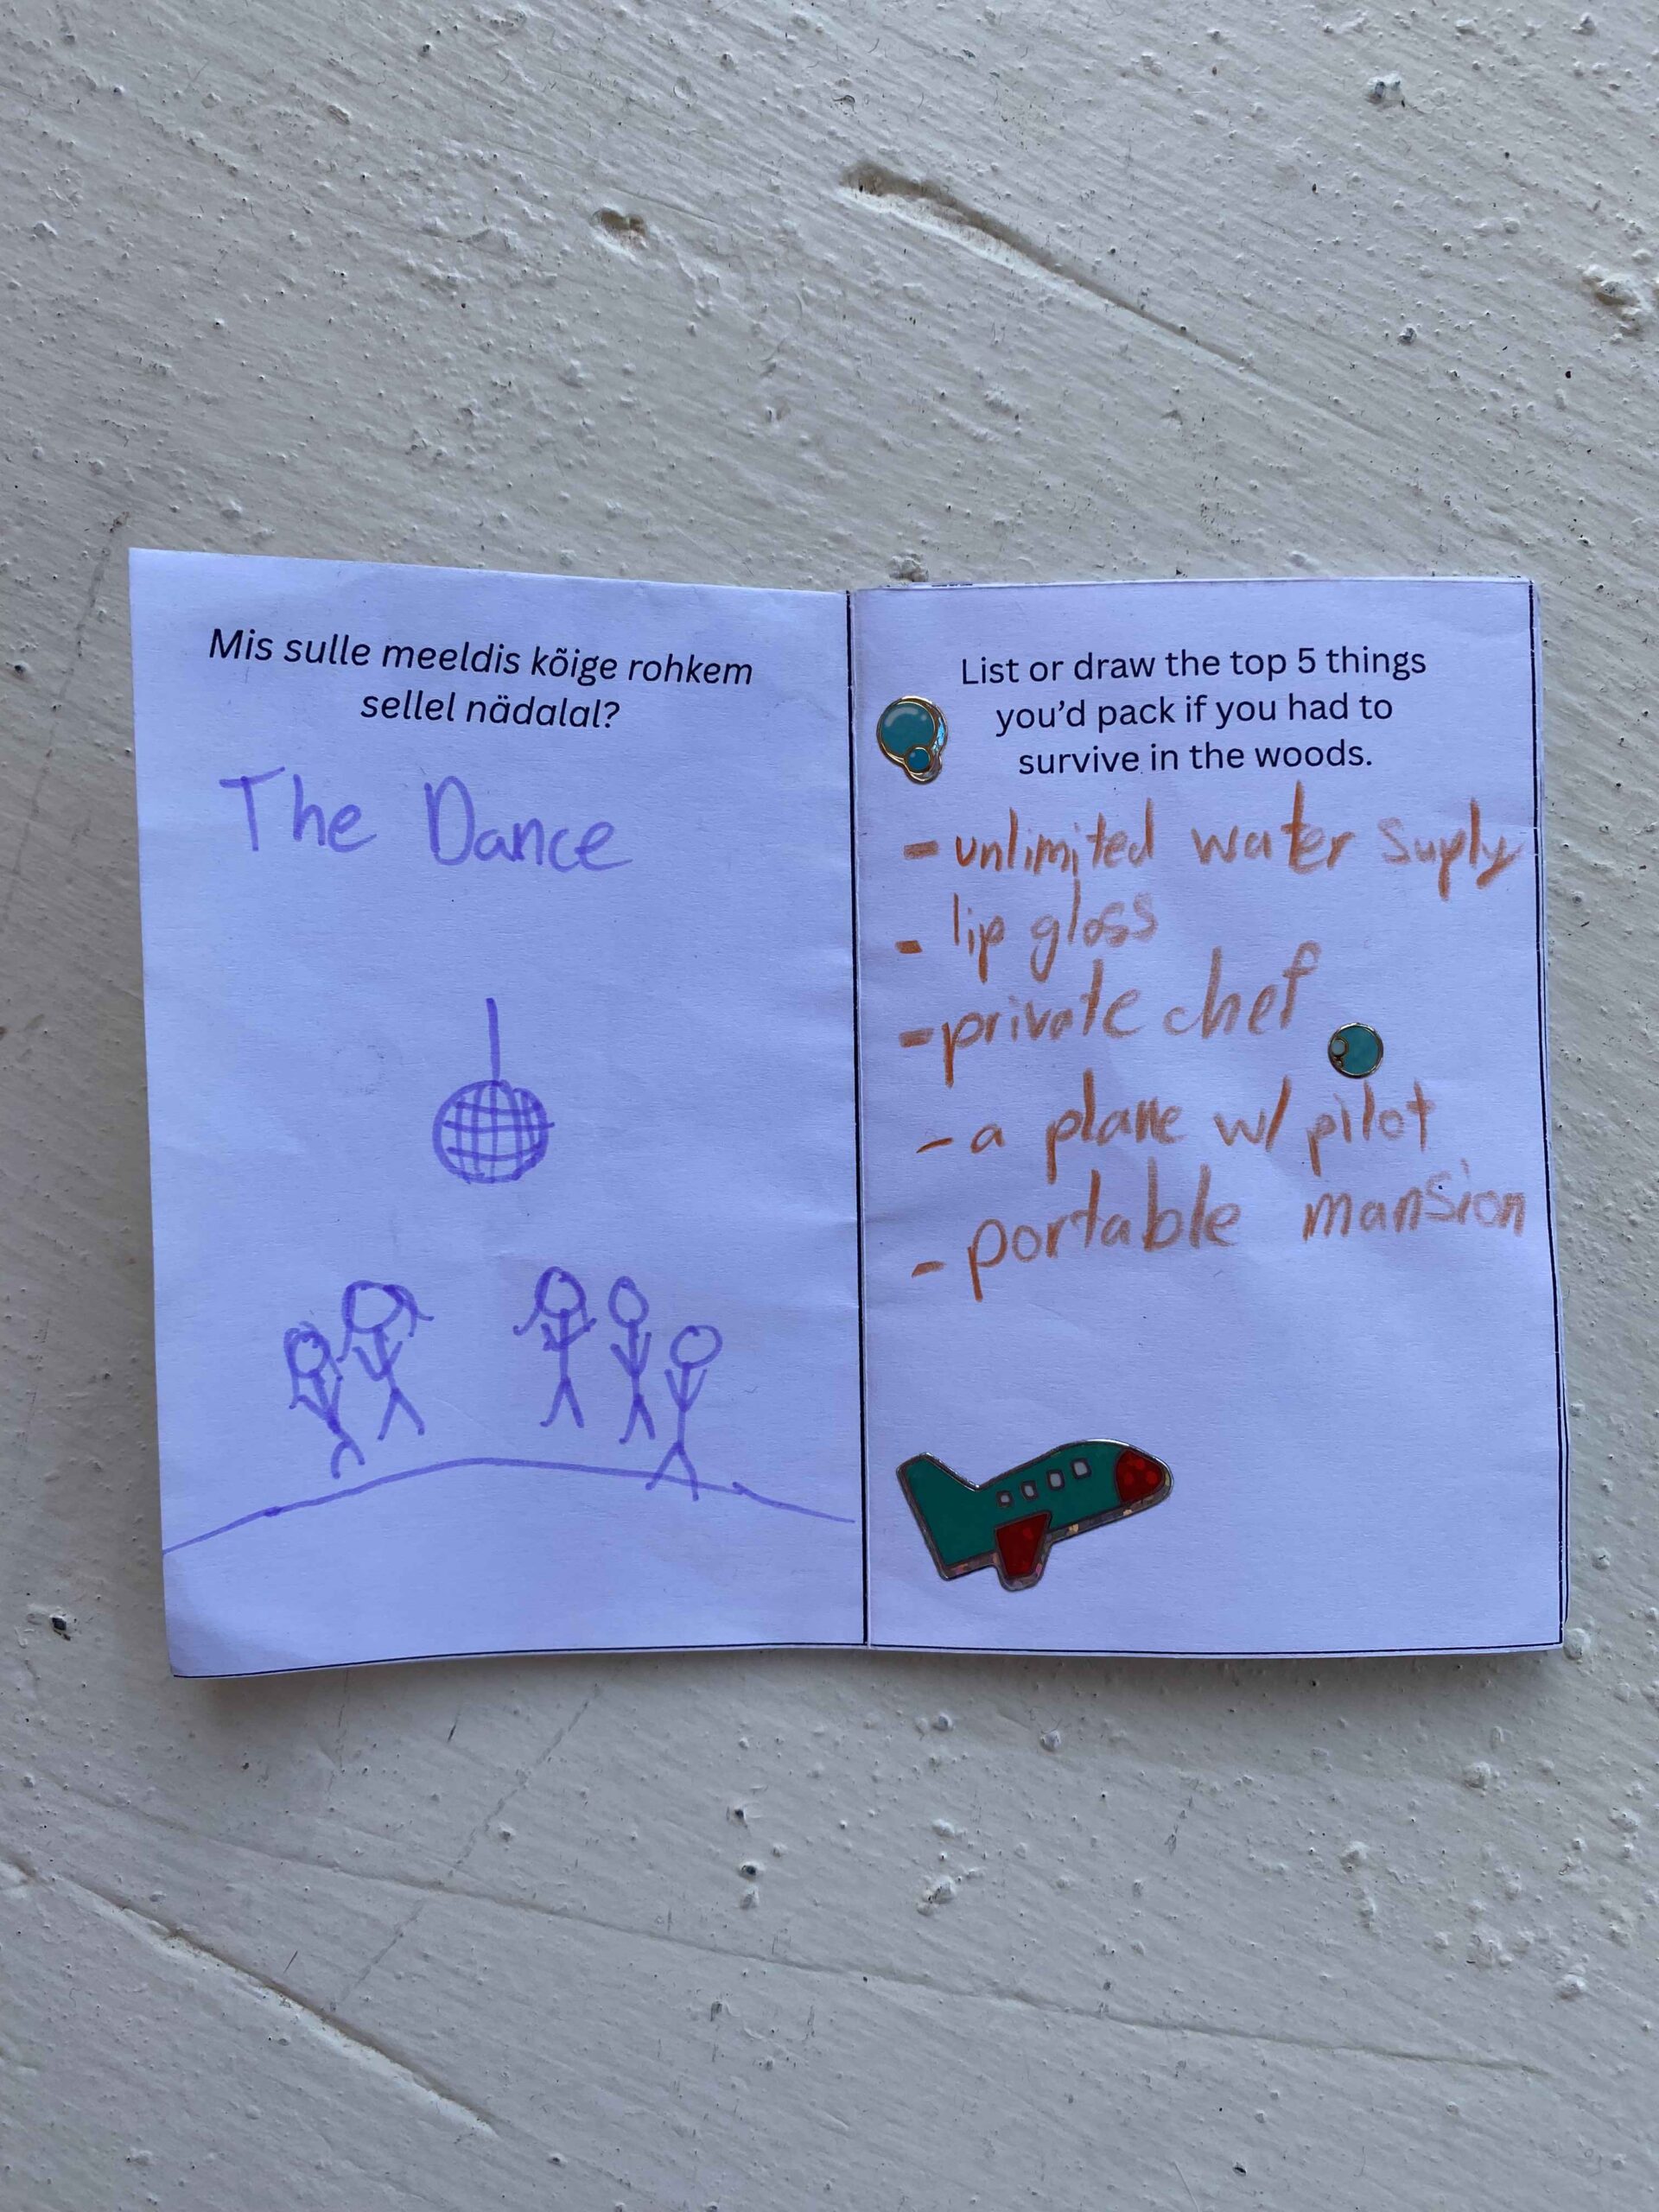 Mis sulle meeldis kõige rohkem
sellel nädalal?
The Dance
List or draw the top 5 things
you'd pack if you had to
survive in the woods.
- unlimited water suply
- lip gloss
- private chef
- a plane w/ pilot
- portable mansion